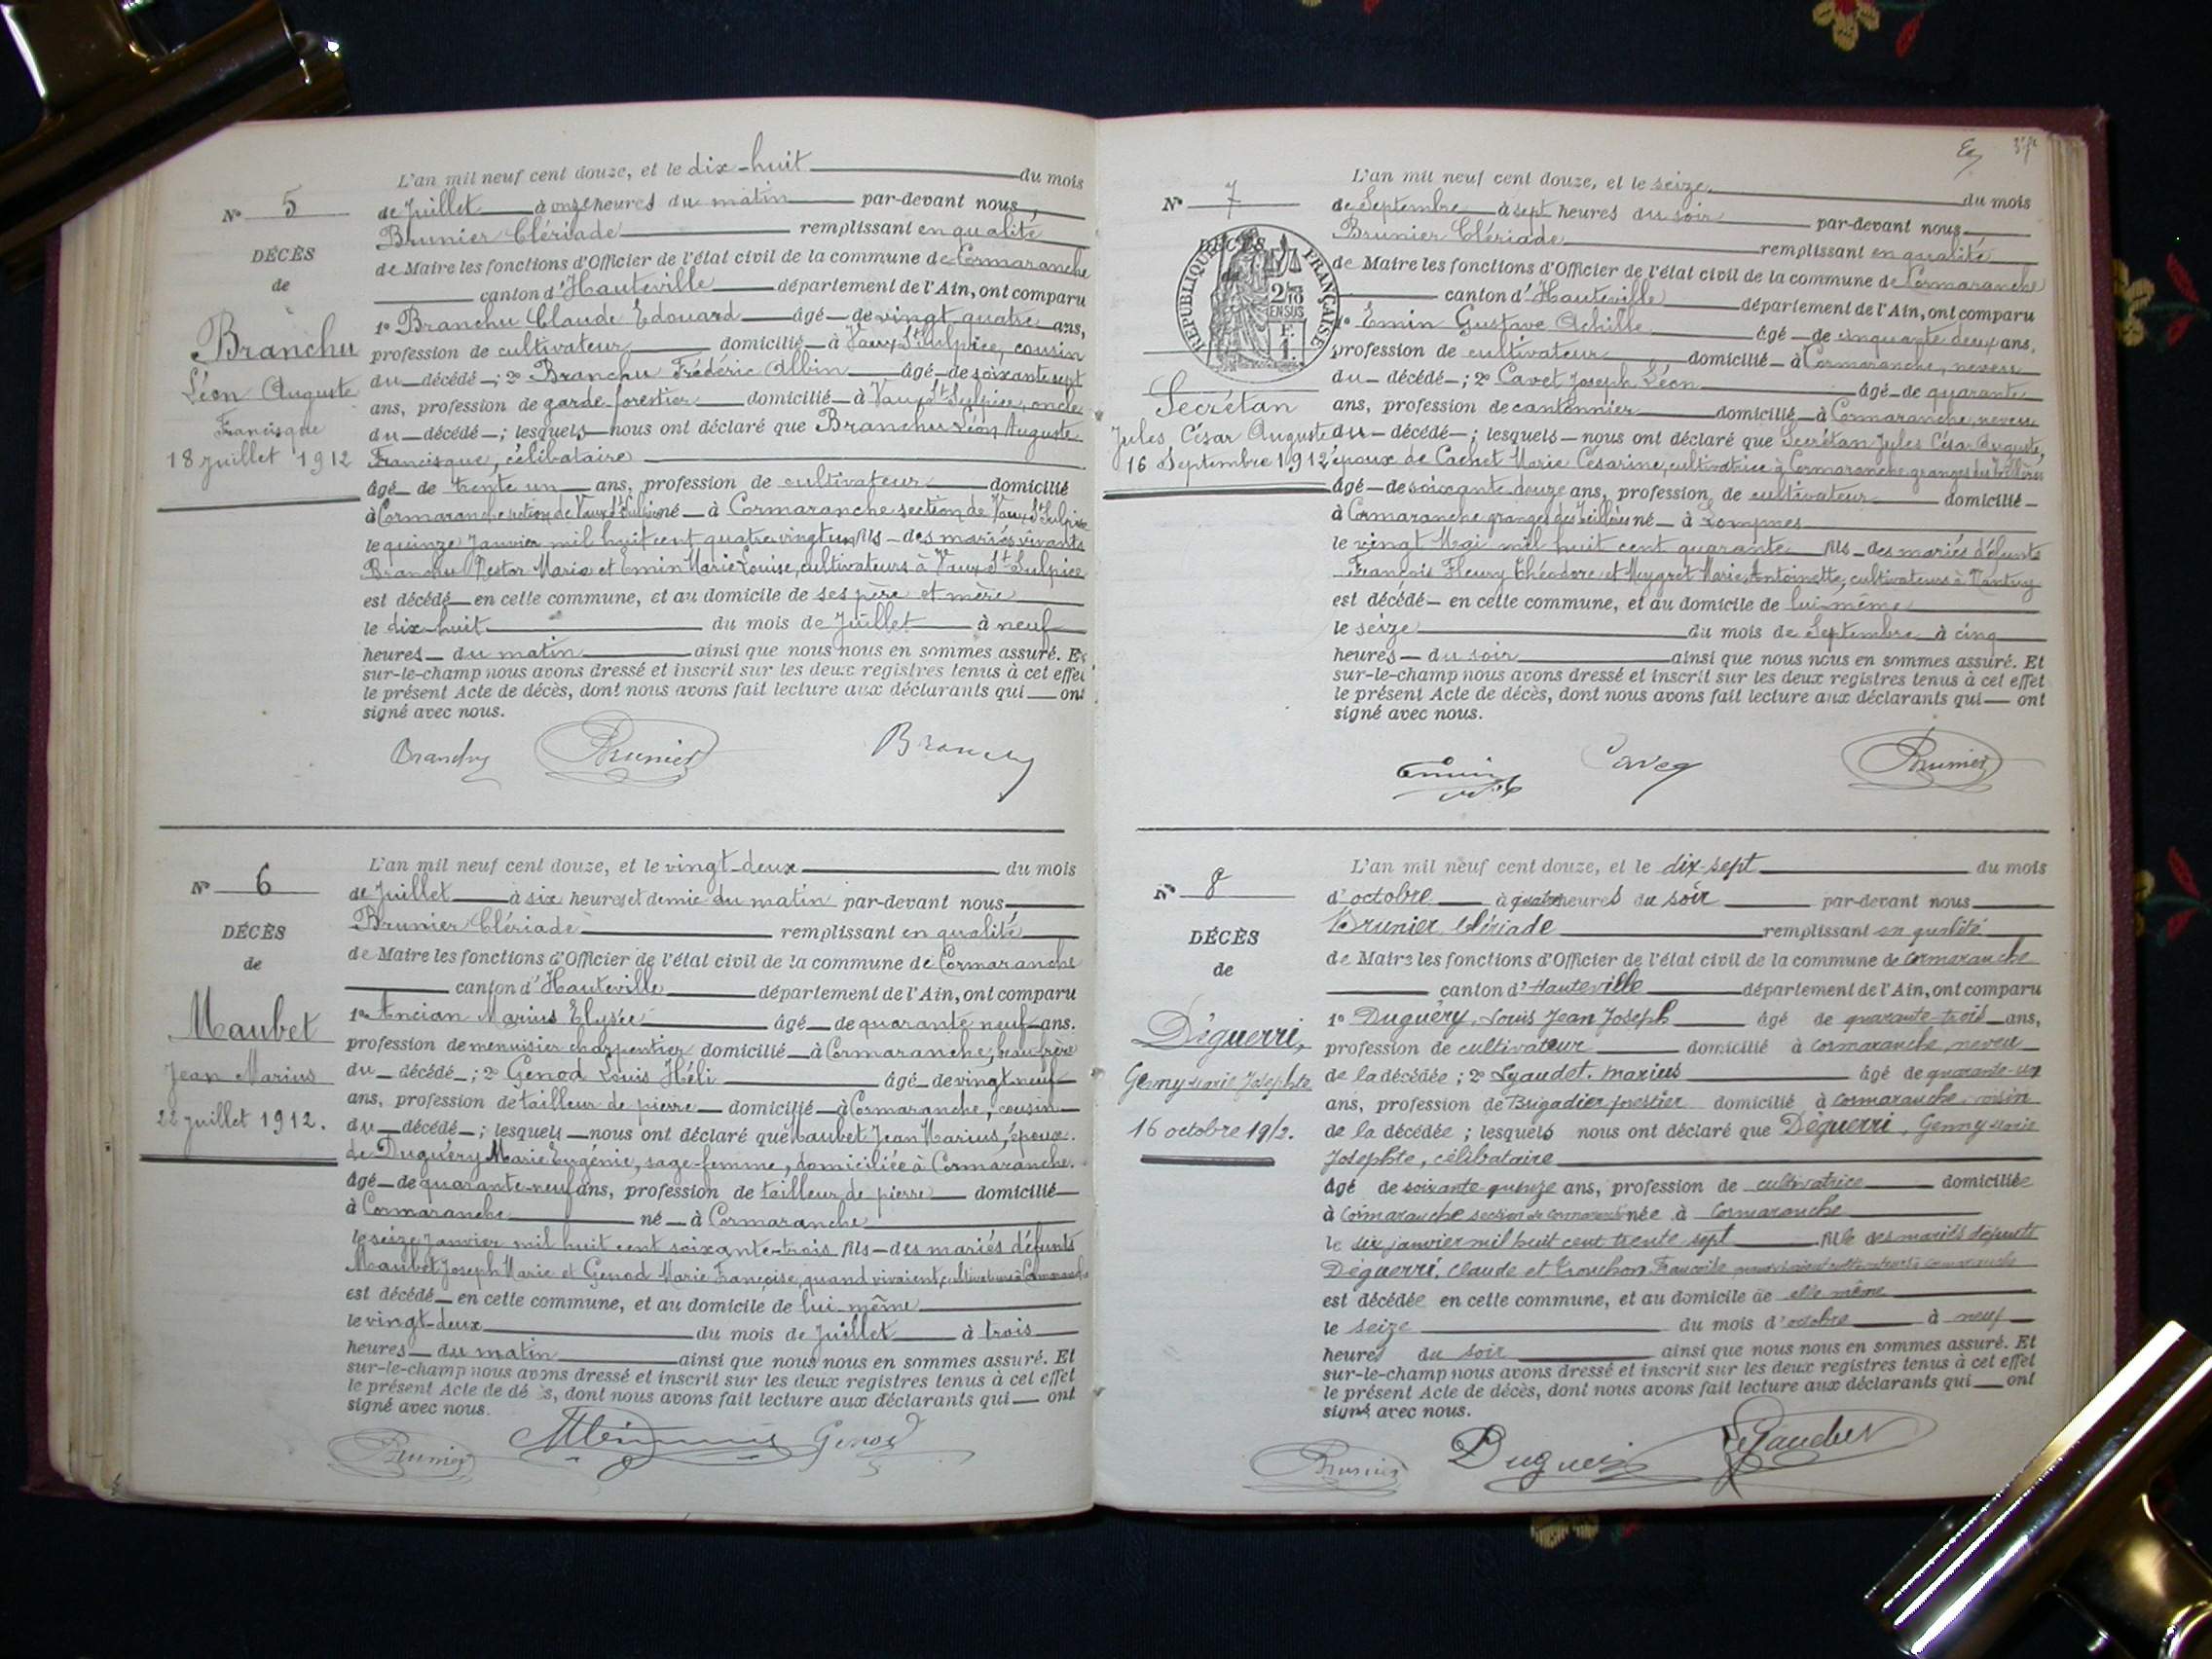 L'an mil neuf cent douze, et le dix-huit du mois
N° 5
de Juillet à onze heures du matin par-devant nous
Brunier Clériade remplissant en qualité
DÉCÈS
de Maire les fonctions d'Officier de l'état civil de la commune de Cormaranche
de
canton d'Hauteville département de l'Ain, ont comparu
1° Branchu Claude Edouard âgé de vingt quatre ans,
Branchu
profession de cultivateur domicilié à Vaux St Sulpice, cousin
Léon Auguste
du décédé ; 2° Branchu Frédéric Albin âgé de soixante sept
ans, profession de garde-forestier domicilié à Vaux St Sulpice, oncle
Francisque
du décédé ; lesquels nous ont déclaré que Branchu Léon Auguste
18 Juillet 1912
Francisque, célibataire
âgé de trente un ans, profession de cultivateur domicilié
à Cormaranche section de Vaux St Sulpice né à Cormaranche section de Vaux St Sulpice
le quinze Janvier mil huit cent quatre vingt un fils des mariés vivants
Branchu Nestor Marie et Emin Marie Louise, cultivateurs à Vaux St Sulpice
est décédé en cette commune, et au domicile de ses père et mère
le dix-huit du mois de Juillet à neuf
heures du matin ainsi que nous nous en sommes assuré. Et
sur-le-champ nous avons dressé et inscrit sur les deux registres tenus à cet effet
le présent Acte de décès, dont nous avons fait lecture aux déclarants qui ont
signé avec nous.
Branchu Brunier Branchu
L'an mil neuf cent douze, et le vingt-deux du mois
N° 6
de Juillet à six heures et demie du matin par-devant nous
Brunier Clériade remplissant en qualité
DÉCÈS
de Maire les fonctions d'Officier de l'état civil de la commune de Cormaranche
de
canton d'Hauteville département de l'Ain, ont comparu
1° Ancian Marius Elysée âgé de quarante neuf ans.
Maubet
profession de menuisier charpentier domicilié à Cormaranche, beau frère
Jean Marius
du décédé ; 2° Genod Louis Héli âgé de vingt neuf
ans, profession de tailleur de pierre domicilié à Cormaranche, cousin
22 Juillet 1912.
du décédé ; lesquels nous ont déclaré que Maubet Jean Marius, époux
de Duguéry Marie Eugénie, sage-femme, domiciliée à Cormaranche.
âgé de quarante-neuf ans, profession de tailleur de pierre domicilié
à Cormaranche né à Cormaranche
le seize Janvier mil huit cent soixante-trois fils des mariés défunts
Maubet Joseph Marie et Genod Marie Françoise, quand vivaient, cultivateurs à Cormaranche
est décédé en cette commune, et au domicile de lui-même
le vingt-deux du mois de Juillet à trois
heures du matin ainsi que nous nous en sommes assuré. Et
sur-le-champ nous avons dressé et inscrit sur les deux registres tenus à cet effet
le présent Acte de dé s, dont nous avons fait lecture aux déclarants qui ont
signé avec nous.
Brunier Genod
L'an mil neuf cent douze, et le seize du mois
N° 7
de Septembre à sept heures du soir par-devant nous
Brunier Clériade remplissant en qualité
DÉCÈS
RÉPUBLIQUE FRANÇAISE
de Maire les fonctions d'Officier de l'état civil de la commune de Cormaranche
2/10 EN SUS
canton d'Hauteville département de l'Ain, ont comparu
1° Emin Gustave Achille âgé de cinquante deux ans,
profession de cultivateur domicilié à Cormaranche, neveu
du décédé ; 2° Cavet Joseph Léon âgé de quarante
Secrétan
ans, profession de cantonnier domicilié à Cormaranche, neveu
Jules César Auguste
du décédé ; lesquels nous ont déclaré que Secrétan Jules César Auguste,
16 Septembre 1912
époux de Cachet Marie Césarine, cultivatrice à Cormaranche granges des
âgé de soixante douze ans, profession de cultivateur domicilié
à Cormaranche granges des né à Lompnes
le vingt Mai mil huit cent quarante fils des mariés défunts
François Fleury Théodore et Meygret Marie Antoinette, cultivateurs à Nantuy
est décédé en cette commune, et au domicile de lui-même
le seize du mois de Septembre à cinq
heures du soir ainsi que nous nous en sommes assuré. Et
sur-le-champ nous avons dressé et inscrit sur les deux registres tenus à cet effet
le présent Acte de décès, dont nous avons fait lecture aux déclarants qui ont
signé avec nous.
Emin Cavet Brunier
L'an mil neuf cent douze, et le dix-sept du mois
N° 8
d'octobre à quatre heures du soir par-devant nous
Brunier Clériade remplissant en qualité
DÉCÈS
de Maire les fonctions d'Officier de l'état civil de la commune de Cormaranche
de
canton d'Hauteville département de l'Ain, ont comparu
1° Duguéry, Louis Jean Joseph âgé de quarante-trois ans,
Déguerri,
profession de cultivateur domicilié à Cormaranche, neveu
Genny Marie Josephte
de la décédée ; 2° Lyaudet. Marius âgé de quarante-un
ans, profession de Brigadier forestier domicilié à Cormaranche voisin
16 octobre 1912.
de la décédée ; lesquels nous ont déclaré que Déguerri, Genny Marie
Josephte, célibataire
âgé de soixante-quinze ans, profession de cultivatrice domiciliée
à Cormaranche section de Cormaranche née à Cormaranche
le dix janvier mil huit cent trente sept fille des mariés défunts
Déguerri, Claude et Trouchon Françoise quand vivaient cultivateurs à Cormaranche
est décédée en cette commune, et au domicile de elle même
le seize du mois d'octobre à neuf
heures du soir ainsi que nous nous en sommes assuré. Et
sur-le-champ nous avons dressé et inscrit sur les deux registres tenus à cet effet
le présent Acte de décès, dont nous avons fait lecture aux déclarants qui ont
signé avec nous.
Brunier Duguery Lyaudet